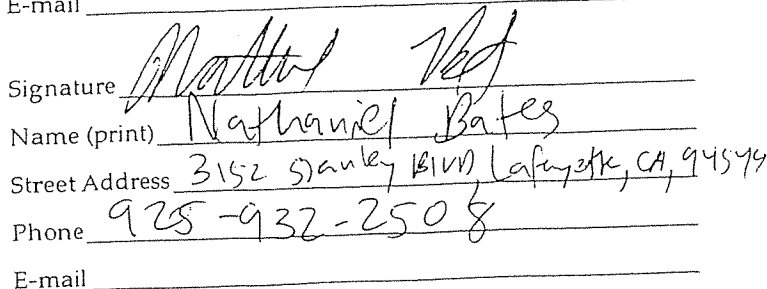 E-mail
Signature
Name (print) Nathaniel Bates
Street Address 3152 Stanley Blvd, Lafayette, CA, 94549
Phone 925-932-2508
E-mail